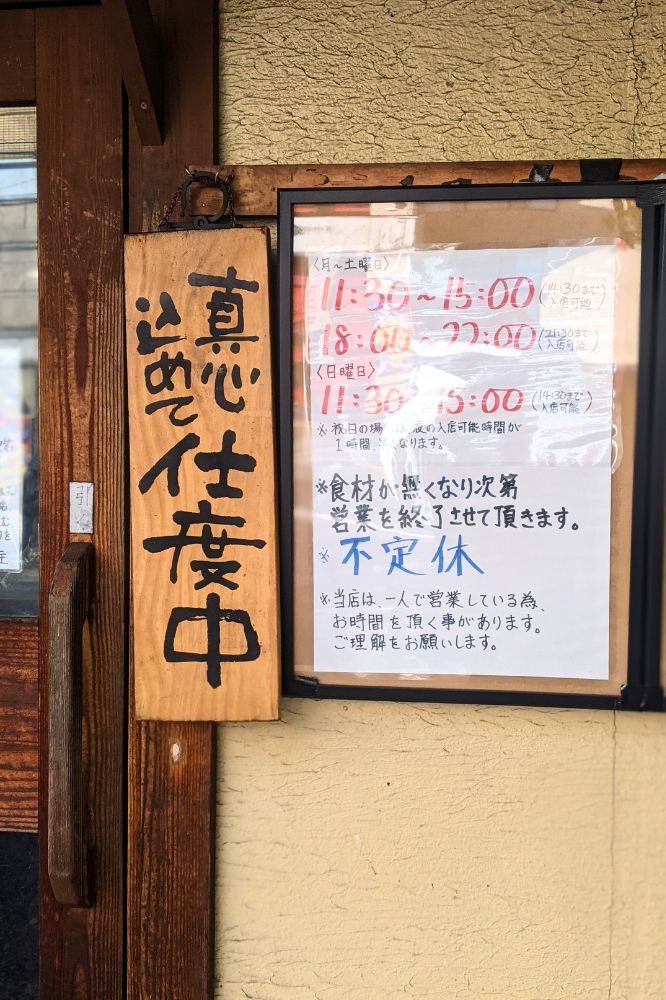 真心
込めて
仕度中
〈月～土曜日〉
11:30～15:00(14:30まで入店可能)
18:00～22:00(21:30まで入店可能)
〈日曜日〉
11:30～15:00(14:30まで入店可能)
※祝日の場合は、夜の入店可能時間が
1時間、早くなります。
※食材が無くなり次第
営業を終了させて頂きます。
※不定休
※当店は、一人で営業している為、
お時間を頂く事があります。
ご理解をお願いします。
引く